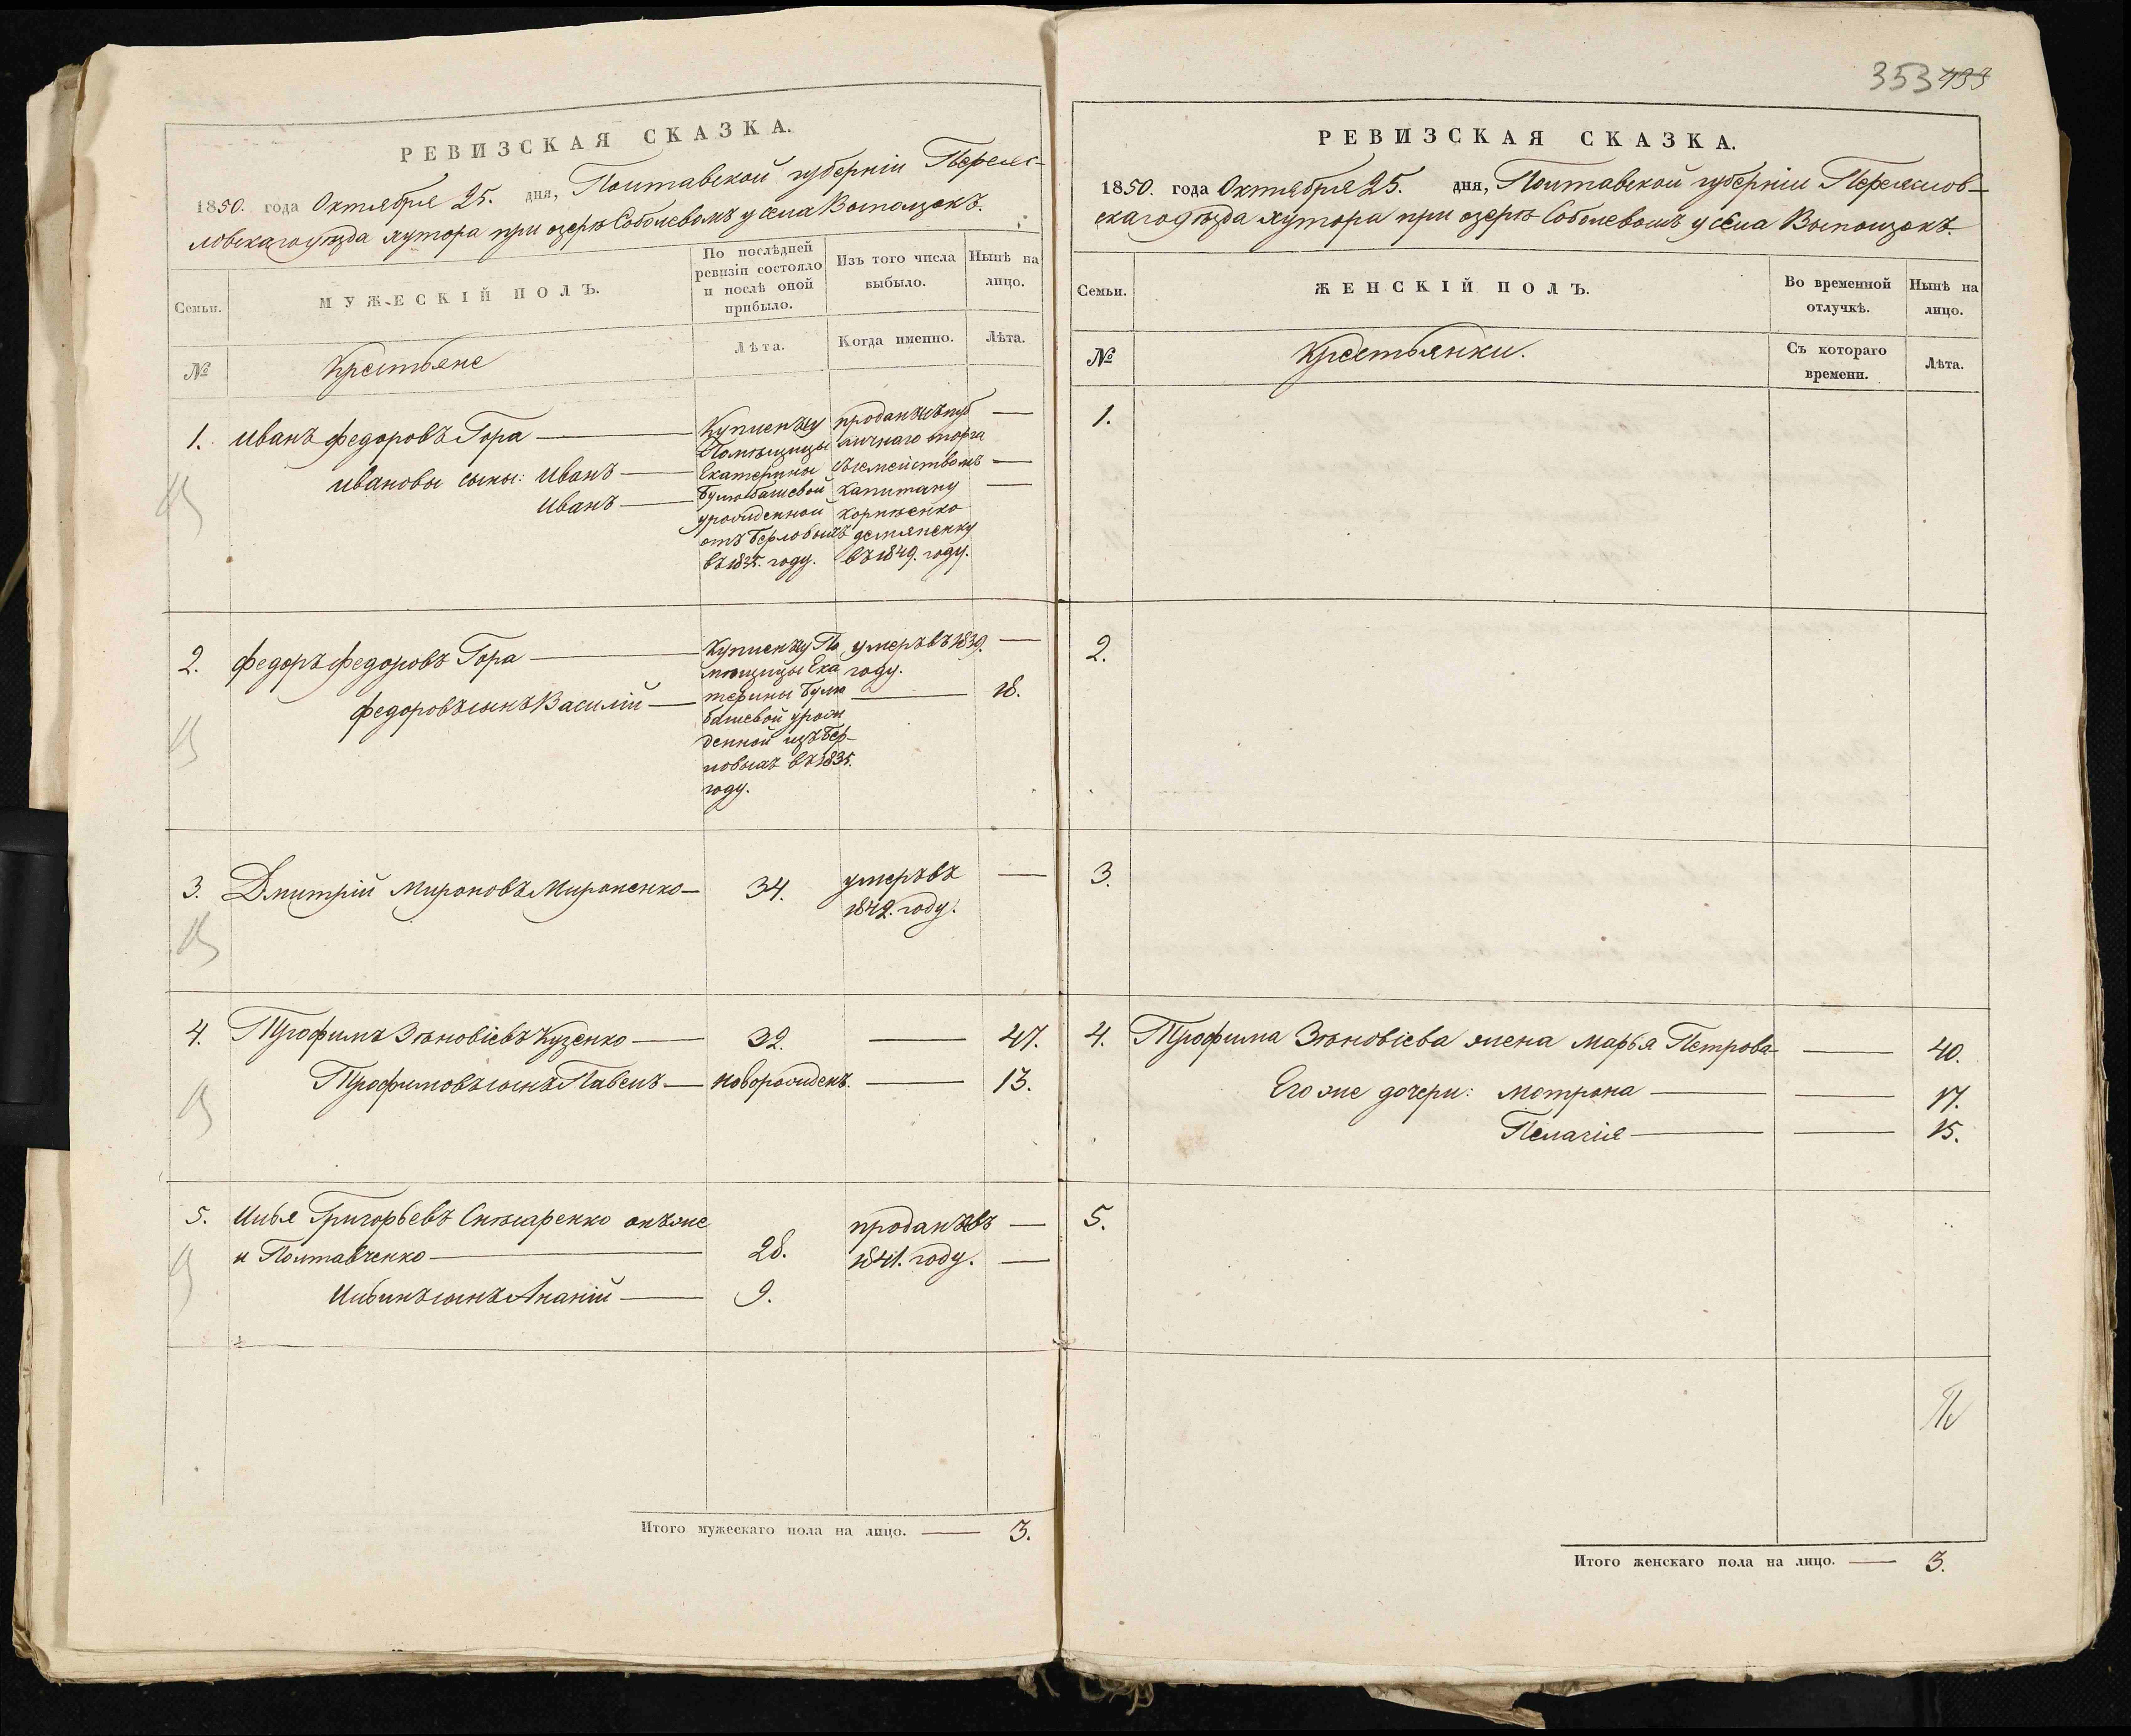 353 433
РЕВИЗСКАЯ СКАЗКА.
1850. года Октября 25. дня, Полтавской губерніи Переяс-
ловскаго уѣзда хутора при озерѣ Соболевомъ у села Выползокъ.
Семьи.
МУЖЕСКІЙ ПОЛЪ.
По послѣдней
ревизіи состояло
и послѣ оной
прибыло.
Изъ того числа
выбыло.
Нынѣ на
лицо.
№
Крестьяне
Лѣта.
Когда именно.
Лѣта.
1. Иванъ Федоровъ Гора
Ивановы сыны: Иванъ
Иванъ
Купленъ у
Помѣщицы
Екатерины
Булюбашевой
урожденной
отъ Берловыхъ
въ 1835. году.
проданъ съ пуб
личнаго торга
съ семействомъ
Капитану
Корнѣенко
демяненку
въ 1849. году.
2. Федоръ Федоровъ Гора
Федоровъ сынъ Василій
Купленъ у По
мѣщицы Ека
терины Булю
башевой урож
денной изъ Бер-
ловыхъ въ 1835.
году.
умеръ въ 1839.
году.
18.
3. Дмитрій Мироновъ Мироненко 34. умеръ въ
1842. году.
4. Трофимъ Зѣновіевъ Куценко 32. 47.
Трофимовъ сынъ Павелъ новорожденъ. 13.
5. Илья Григорьевъ Слѣсаренко онъ же
и Полтавченко 28.
проданъ въ
1841. году.
Ильинъ сынъ Ананій 9.
Итого мужескаго пола на лицо. 3.
РЕВИЗСКАЯ СКАЗКА.
1850. года Октября 25. дня, Полтавской губерніи Переяслов-
скаго уѣзда хутора при озерѣ Соболевомъ у села Выползокъ.
Семьи.
ЖЕНСКІЙ ПОЛЪ.
Во временной
отлучкѣ.
Нынѣ на
лицо.
№
Крестьянки.
Съ котораго
времени.
Лѣта.
1.
2.
3.
4. Трофима Зѣновіева жена Марья Петрова 40.
Его же дочери: Мотрона 17.
Пелагія 15.
5.
Итого женскаго пола на лицо. 3.